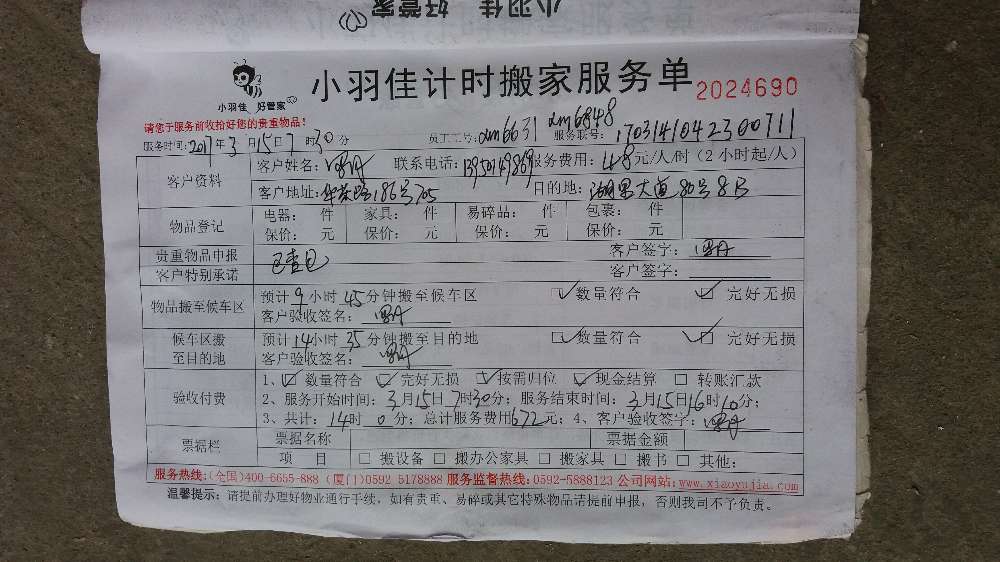 小羽佳 好管家
小羽佳 好管家
小羽佳计时搬家服务单 2024690
请您于服务前收拾好您的贵重物品!
服务时间:2017年3月15日7时30分 员工工号:xm6631 xm6848 服务联号:1703141042300711
客户资料 客户姓名: 联系电话:13950149869 服务费用:48元/人/时(2小时起/人)
客户地址:华荣路186号705 目的地:湖里大道80号8B
物品登记 电器: 件 家具: 件 易碎品: 件 包裹: 件
保价: 元 保价: 元 保价: 元 保价: 元
贵重物品申报 已查包 客户签字:
客户特别承诺 客户签字:
物品搬至候车区 预计9小时45分钟搬至候车区 ☑数量符合 ☑完好无损
客户验收签名:
候车区搬至目的地 预计14小时35分钟搬至目的地 ☑数量符合 ☑完好无损
客户验收签名:
验收付费 1、☑数量符合 ☑完好无损 ☑按需归位 ☑现金结算 □转账汇款
2、服务开始时间:3月15日7时30分;服务结束时间:3月15日16时10分;
3、共计:14时0分;总计服务费用672元;4、客户验收签字:
票据栏 票据名称 票据金额
项 目 □搬设备 □搬办公家具 □搬家具 □搬书 □其他:
服务热线:(全国)400-6655-888 (厦门)0592 5178888 服务监督热线:0592-5888123 公司网站:www.xiaoyujia.com
温馨提示:请提前办理好物业通行手续,如有贵重、易碎或其它特殊物品请提前申报,否则我司不予负责。